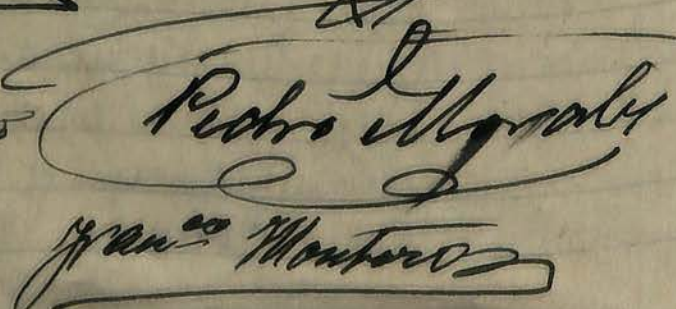 Pedro Morales
Fran.co Monteros